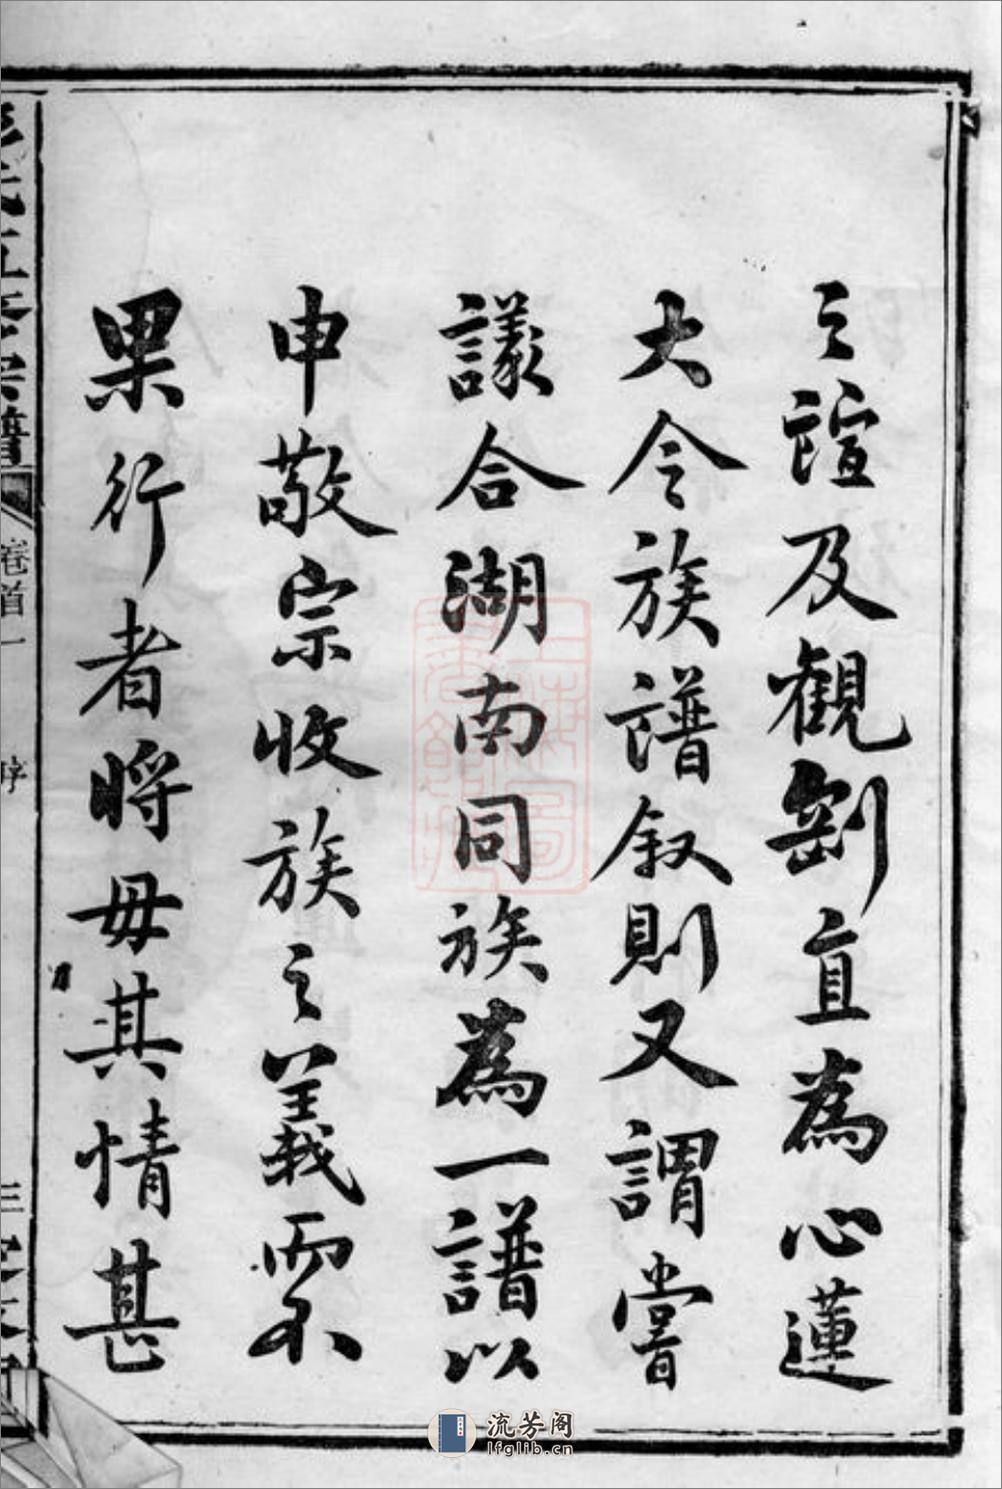 之誼及觀劉直為心蓮
大令族譜叙則又謂嘗
議合湖南同族為一譜以
申敬宗收族之義而不
果行者將毋其情甚
氏五修宗譜
卷首一
序
三
流芳阁
lfglib.cn